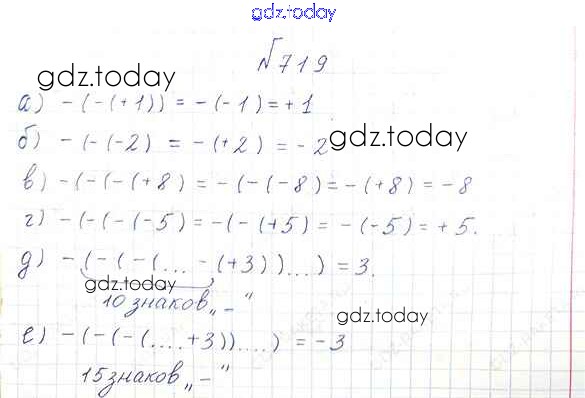 gdz.today
№719
gdz.today
а) -(-(+1)) = -(-1) = +1
б) -(-(-2) = -(+2) = -2 gdz.today
в) -(-(-(+8) = -(-(-8) = -(+8) = -8
г) -(-(-(-5) = -(-(+5) = -(-5) = +5.
д) -(-(-(... -(+3))...) = 3.
gdz.today
10 знаков „-“
gdz.today
е) -(-(-(....+3))....) = -3
15 знаков „-“